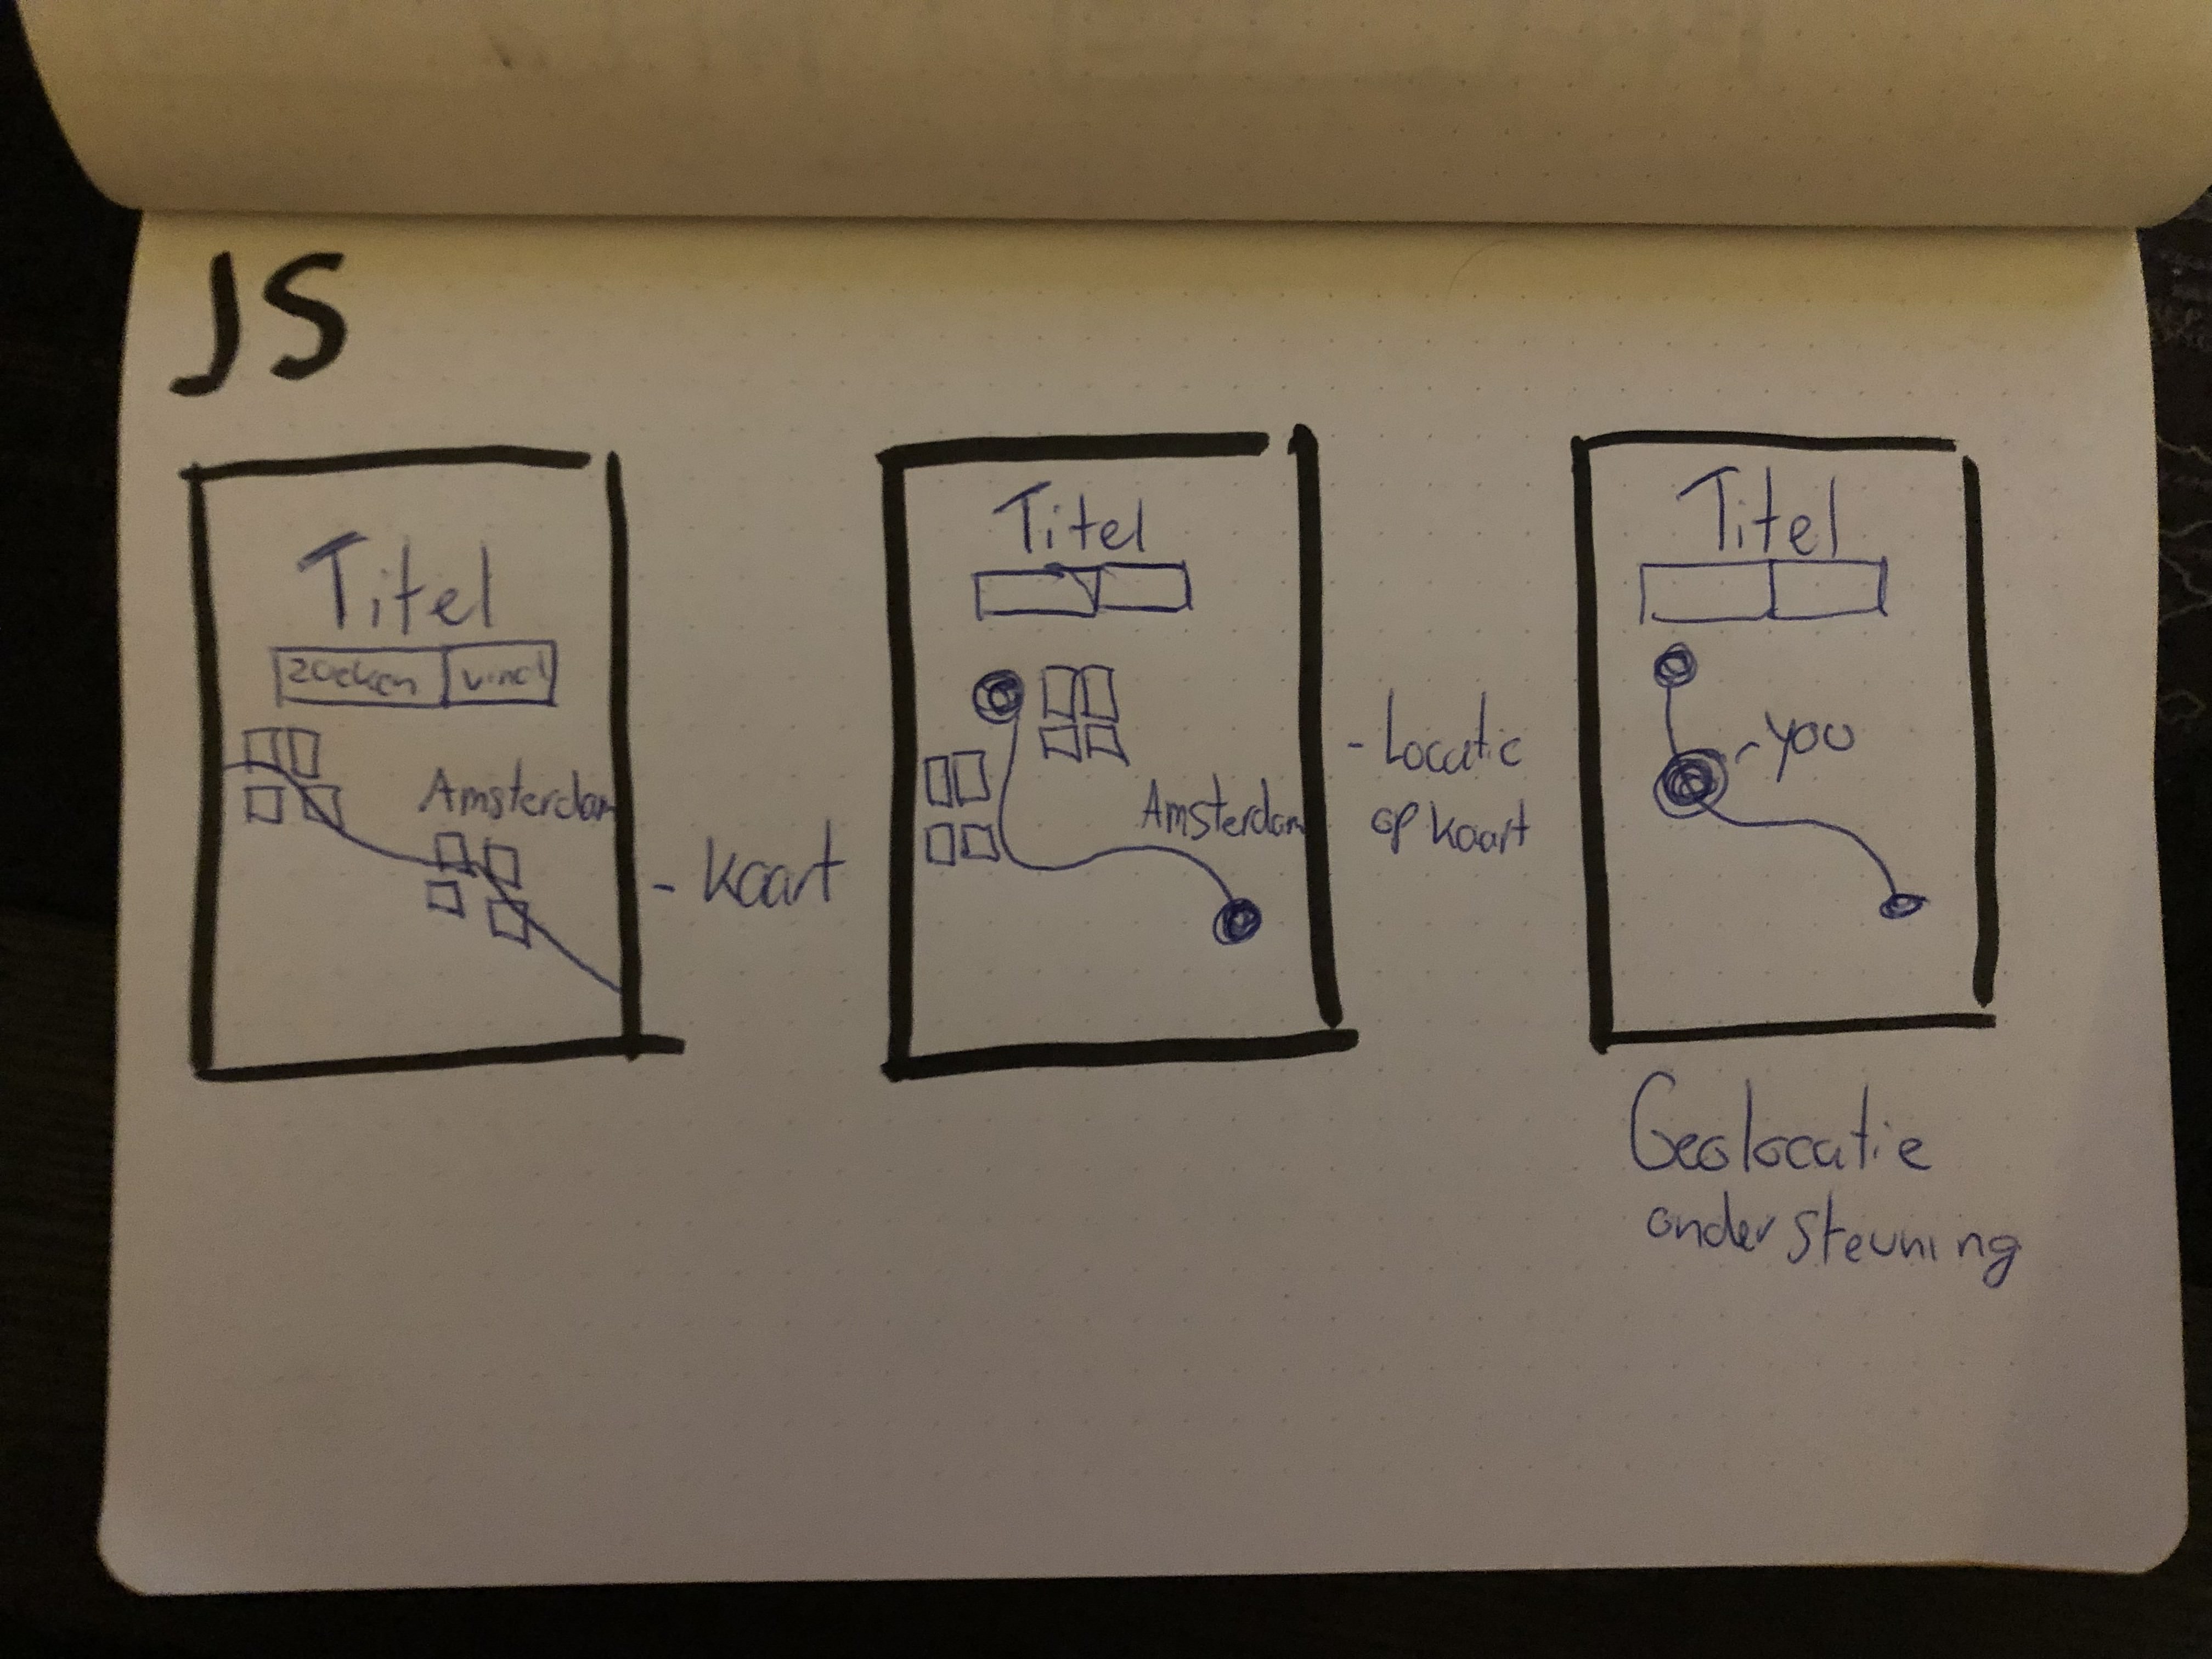 JS
Titel
zoeken vind
Amsterdam
- kaart
Titel
Amsterdam
- Locatie
op kaart
Titel
- you
Geolocatie
ondersteuning